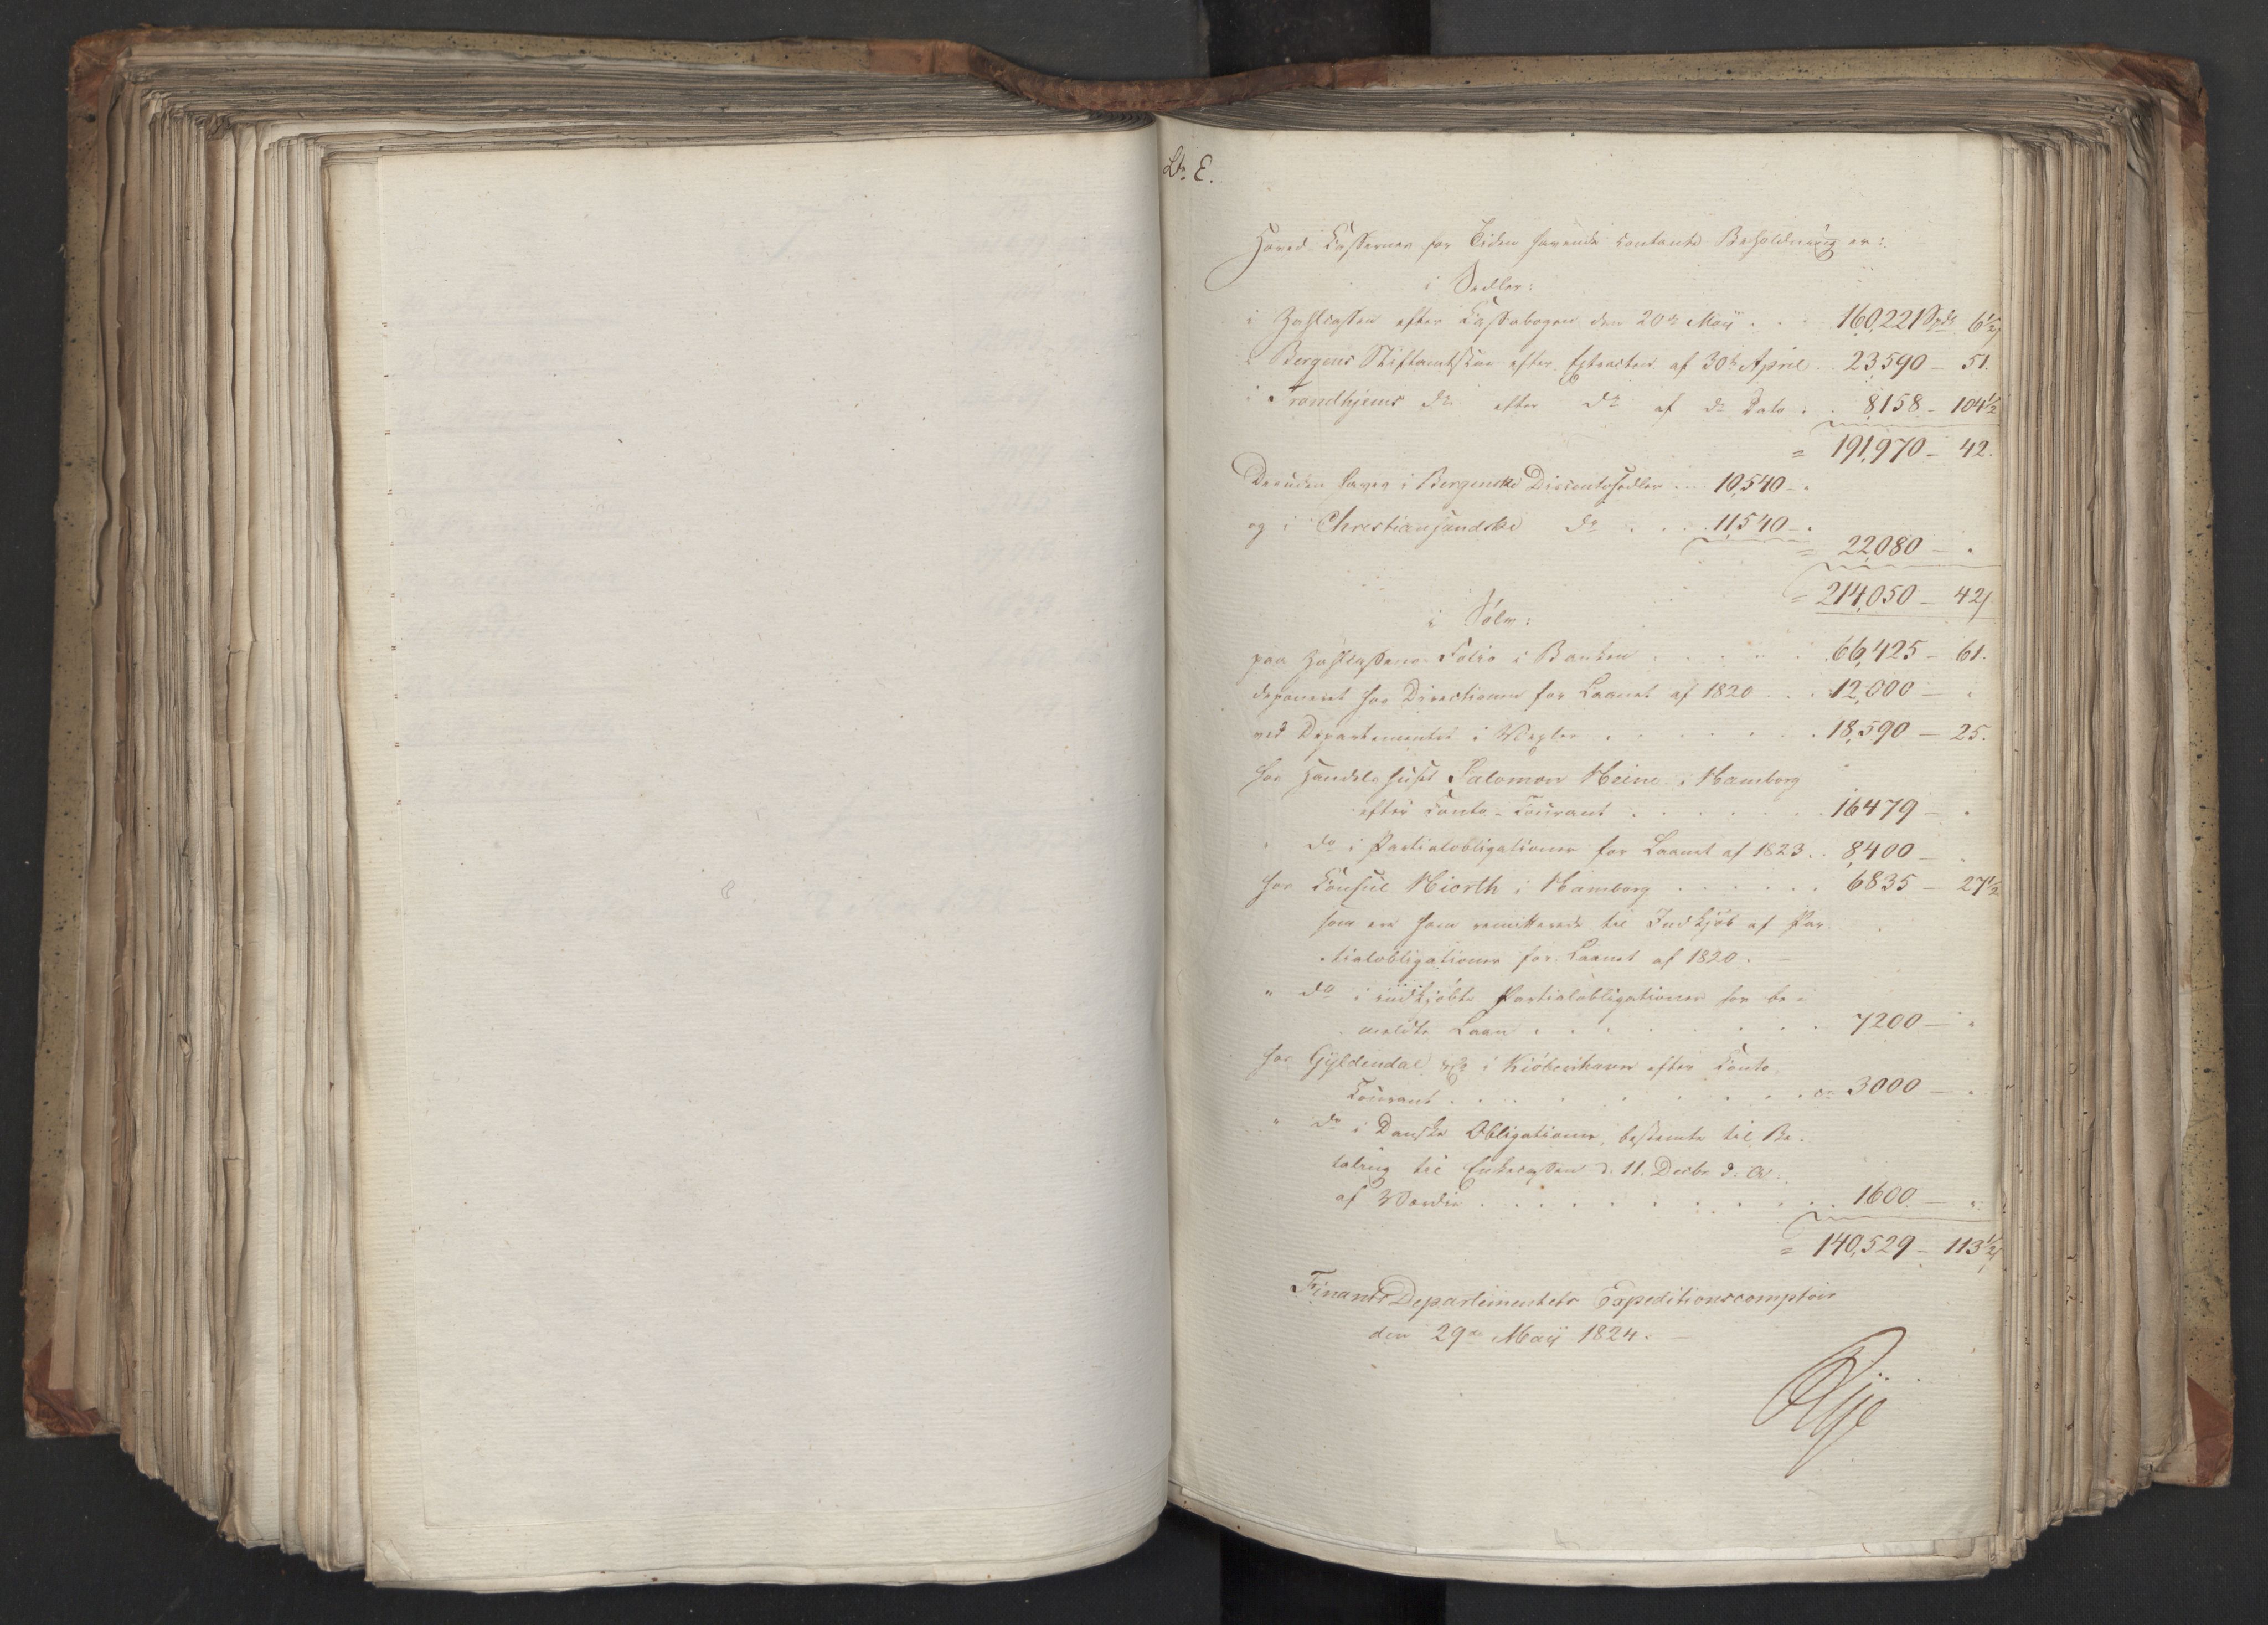 Ltr. E.
Hoved-Cassernes for Tiden havende contante Beholdning er:
i Sedler:
i Zahlcassen efter Cassabogen den 20de Maii . . . 160,221 Spd. 6½ s
i Bergens Stiftamtstue efter Extracten af 30te April . . 23,590 — 51.
i Trondhjems do efter do af do Dato . . 8,158 — 104½
= 191,970 — 42.
Desuden haves i Bergenske Discontosedler . . . 10,540 — .
og i Christiansandske do . . . 11,540 — .
= 22,080 — .
= 214,050 — 42 s
i Sølv:
paa Zahlcassens Folio i Banken . . . . . 66,425 — 61.
deponeret hos Directionen for Laanet af 1820 . . . 12,000 — .
ved Departementet i Vexler . . . . . . . 18,590 — 25.
hos Handelshuset Salomon Heine i Hamborg
efter Conto-Courant . . . . . . . 16479 — .
" do i Partialobligationer for Laanet af 1823 . . 8,400 — .
hos Consul Hiorth i Hamborg . . . . . . 6835 — 27½
som ere ham remitterede til Indkjøb af Par-
tialobligationer for Laanet af 1820. —
" do i indkjøbte Partialobligationer for be-
meldte Laan . . . . . . . . . 7200 — "
hos Gyldendal & Co i Kiöbenhavn efter Conto
Courant . . . . . . . . . ca 3000 — .
" do i Danske Obligationer, bestemte til Be-
taling til Enkecassen d. 11. Decbr d. A.
af Værdie . . . . . . . . . 1600 — "
= 140,529 — 113½ s
Finants Departementets Expeditionscomptoir
den 29de Maii 1824. —